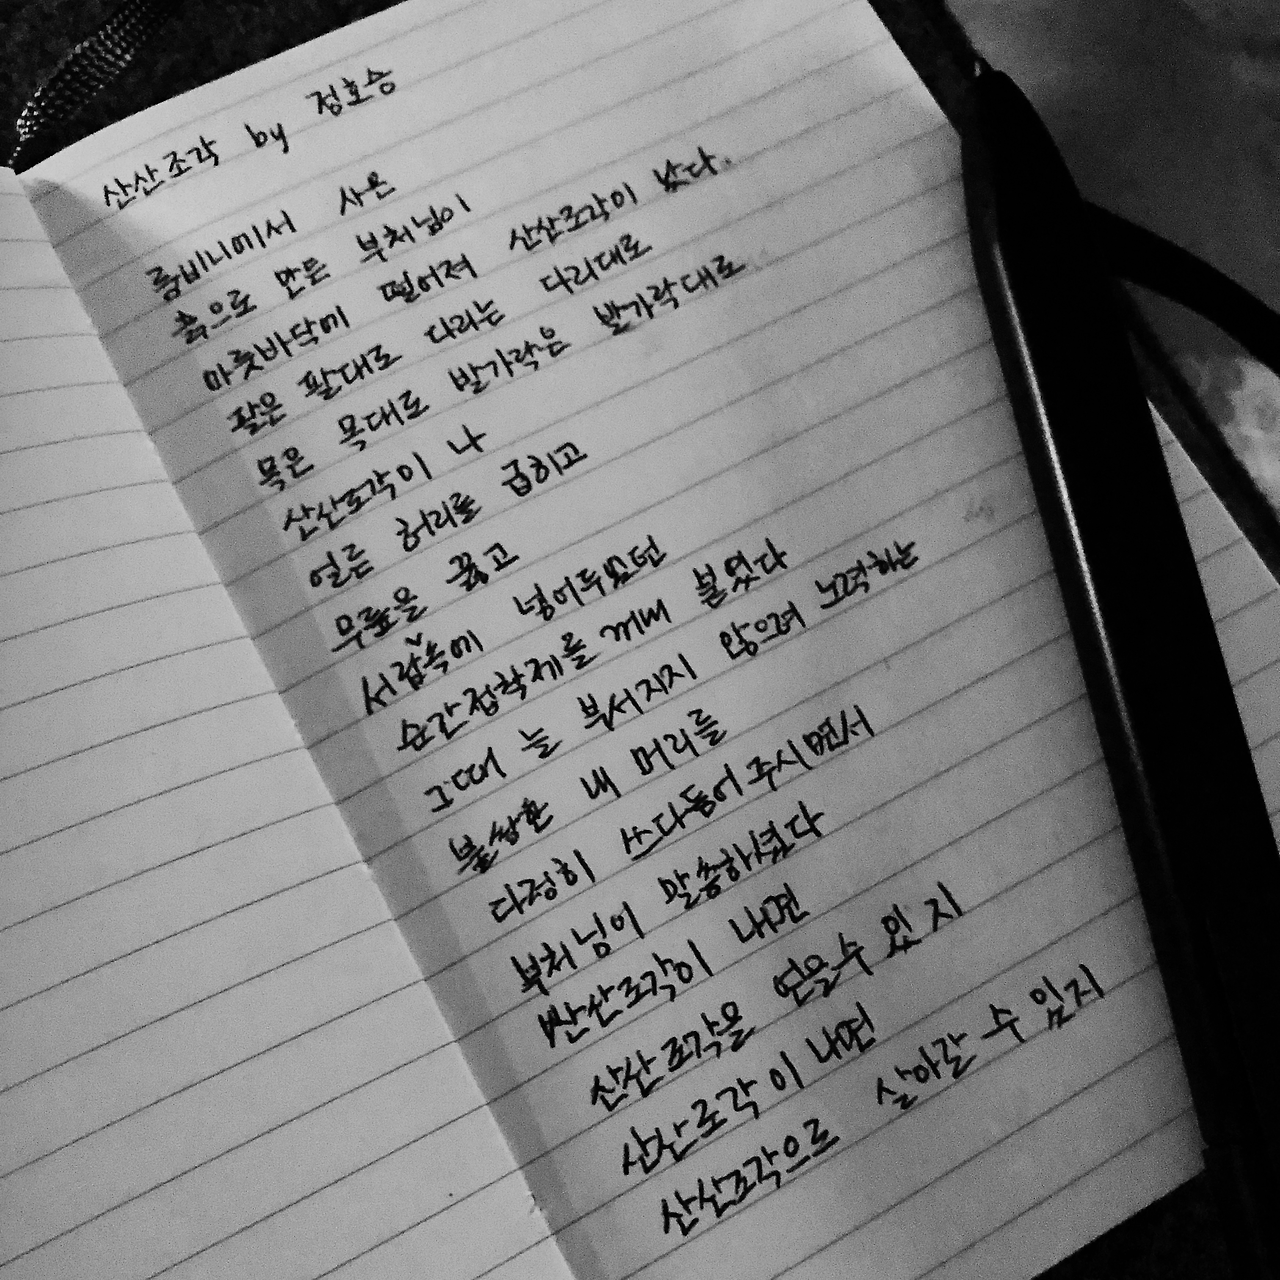 산산조각 by 정호승
룸비니에서 사온
흙으로 만든 부처님이
마룻바닥에 떨어져 산산조각이 났다.
팔은 팔대로 다리는 다리대로
목은 목대로 발가락은 발가락대로
산산조각이 나
얼른 허리를 굽히고
무릎을 꿇고
서랍속에 넣어두었던
순간접착제를 꺼내 붙였다
그때 늘 부서지지 않으려 노력하는
불쌍한 내 머리를
다정히 쓰다듬어 주시면서
부처님이 말씀하셨다
산산조각이 나면
산산조각을 얻을수 있지
산산조각이 나면
산산조각으로 살아갈 수 있지